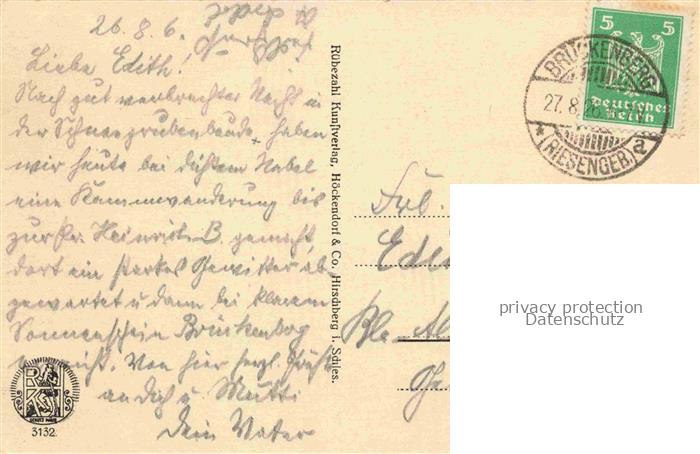 26.8.6.
Liebe Edith!
Nach gut verbrachter Nacht in
der Schneegrubenbaude haben
wir heute bei dichtem Nebel
eine Kammwanderung bis
zur Pr. Heinrich B. gemacht,
dort ein starkes Gewitter ab
gewartet u dann bei klarem
Sonnenschein Brückenberg
erreicht. Von hier herzl. Grüße
an dich u. Mutti
Dein Vater
3132
Rübezahl Kunstverlag, Höckendorf & Co., Hirschberg i. Schles.
5 5
Deutsches
Reich
BRÜCKENBERG
27.8.26
* (RIESENGEB.) a
Frl.
Edi
Ble. Al
privacy protection
Datenschutz